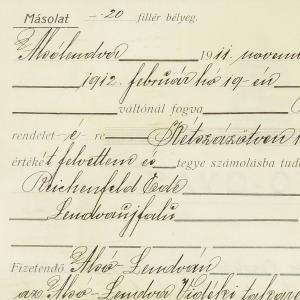 Másolat -.20 fillér bélyeg.
Alsólendva 1911. novem
1912. február hó 19-én
váltónál fogva
rendelet-é-re Kétszázötven
értékét felvettem és tegye számolásba tud
Reichenfeld Ede
Lendvaujfalu
Fizetendő Alsó-Lendván
az Alsó-Lendva Vidéki takar